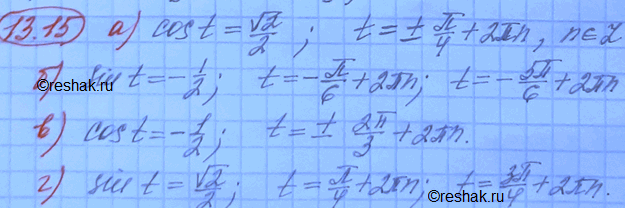 13.15 а) cos t = √2/2 ; t = ± π/4 + 2πn, n∈Z
б) sin t = -1/2 ; t = -π/6 + 2πn; t = -5π/6 + 2πn
в) cos t = -1/2 ; t = ± 2π/3 + 2πn.
г) sin t = √2/2 ; t = π/4 + 2πn; t = 3π/4 + 2πn.
©reshak.ru
©reshak.ru
©reshak.ru
©reshak.ru